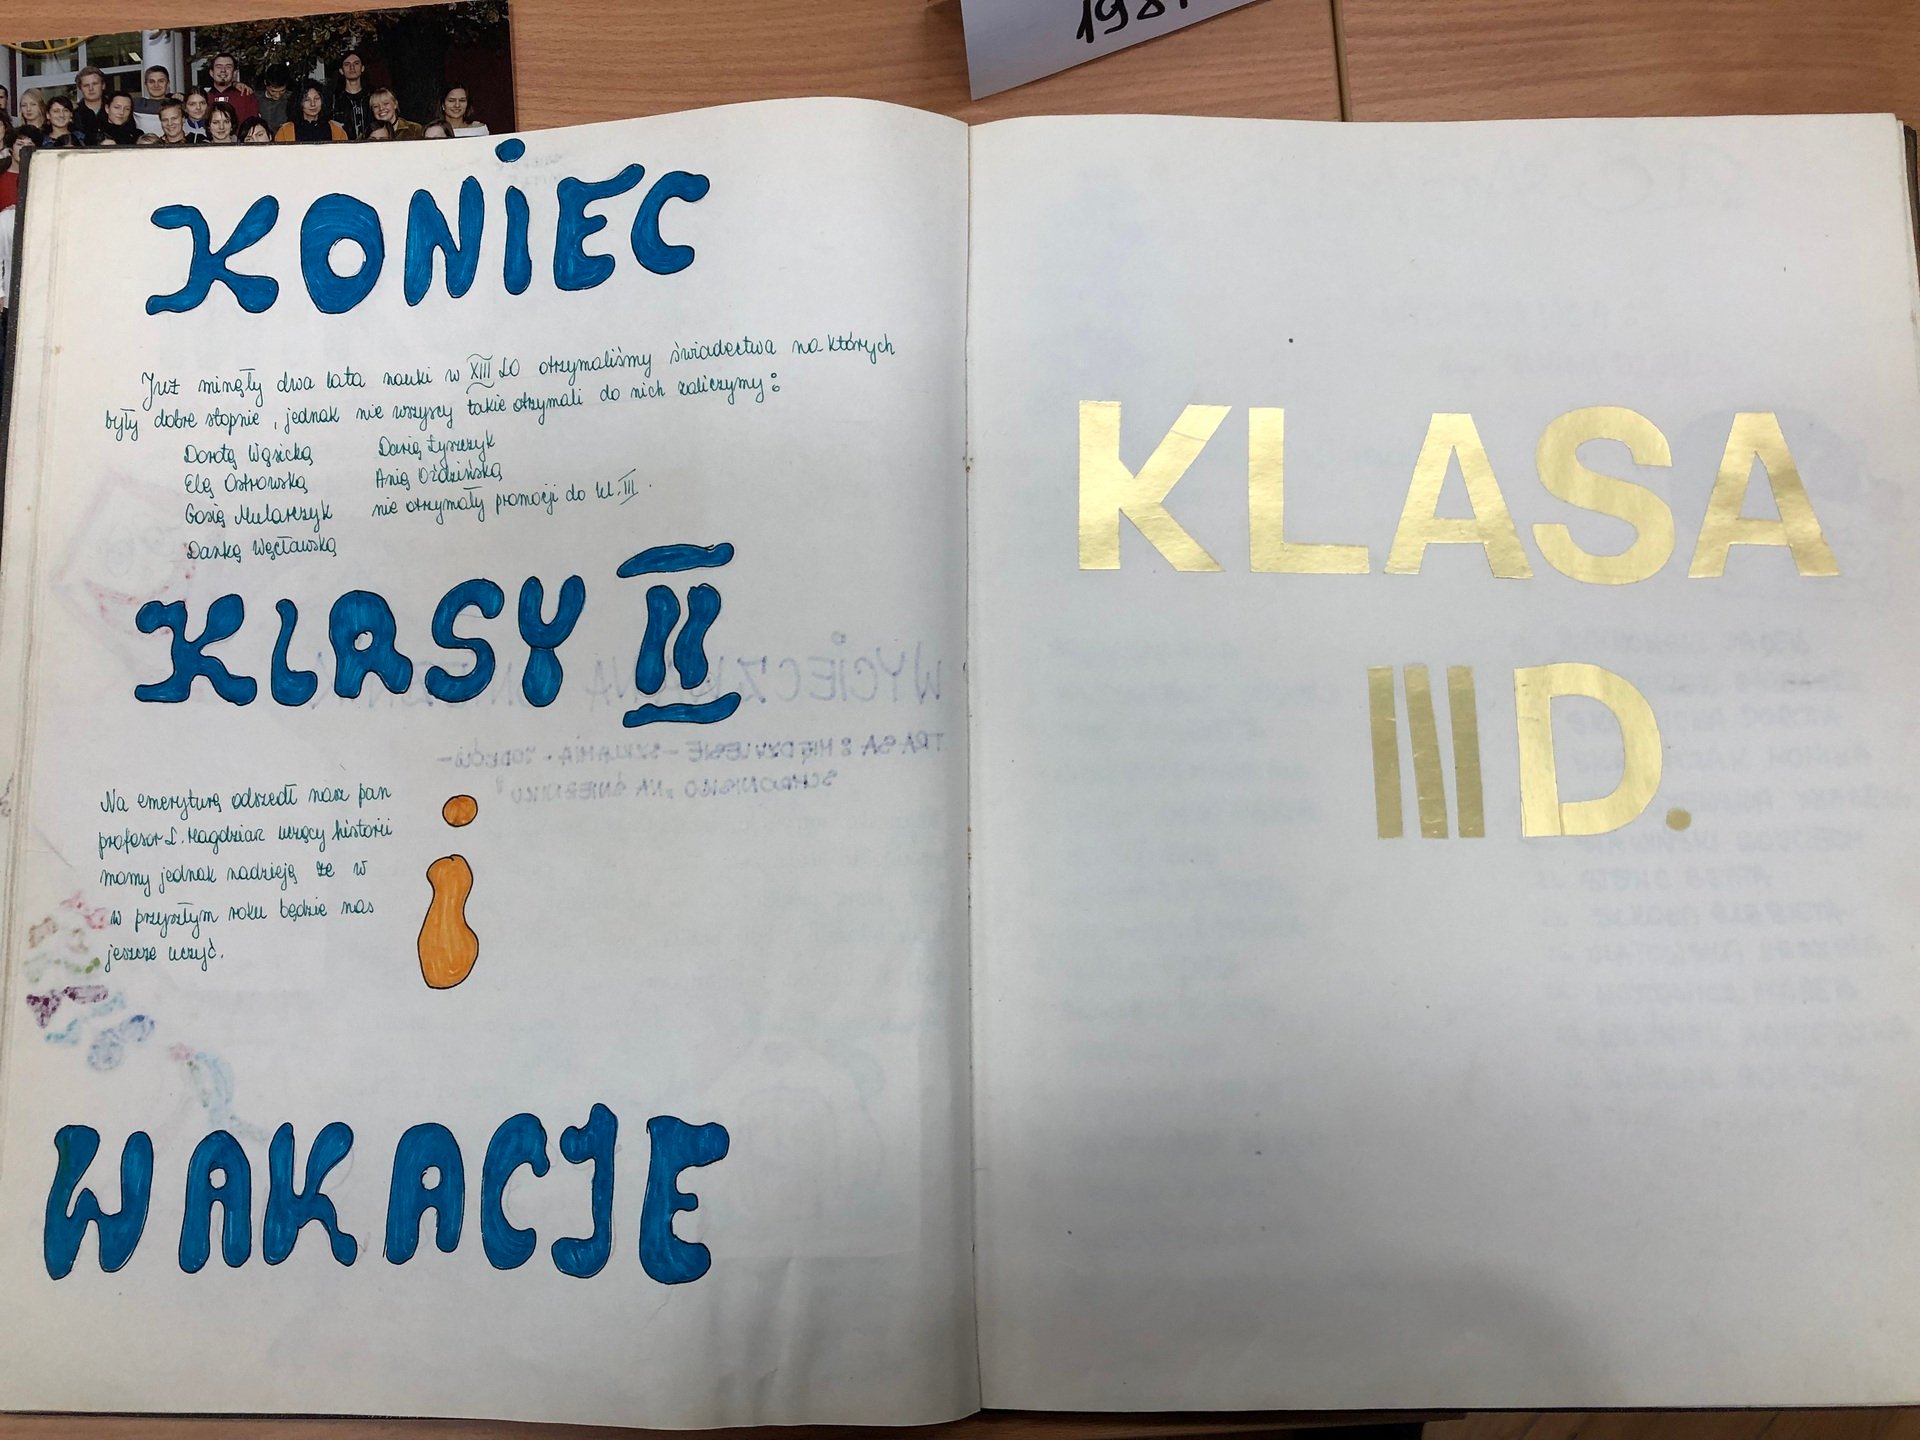 198
KONiEC
Już minęły dwa lata nauki w XIII LO otrzymaliśmy świadectwa na których
były dobre stopnie, jednak nie wszyscy takie otrzymali do nich zaliczymy:
Dorotę Wąsicką
Darię Łyszczyk
Elę Ostrowską
Anię Oździńską
Gosię Mularczyk
nie otrzymały promocji do kl. III.
Dankę Węcławską
KLASY II
Na emeryturę odszedł nasz pan
profesor L. Magdziarz uczący historii
mamy jednak nadzieję że w
w przyszłym roku będzie nas
jeszcze uczyć.
i
WAKACJE
KLASA
III D.
WYCIECZKA NA ŚNIEŻNIK
TRASA: MIĘDZYLESIE - - JODŁÓW -
SCHRONISKO "NA ŚNIEŻNIKU"